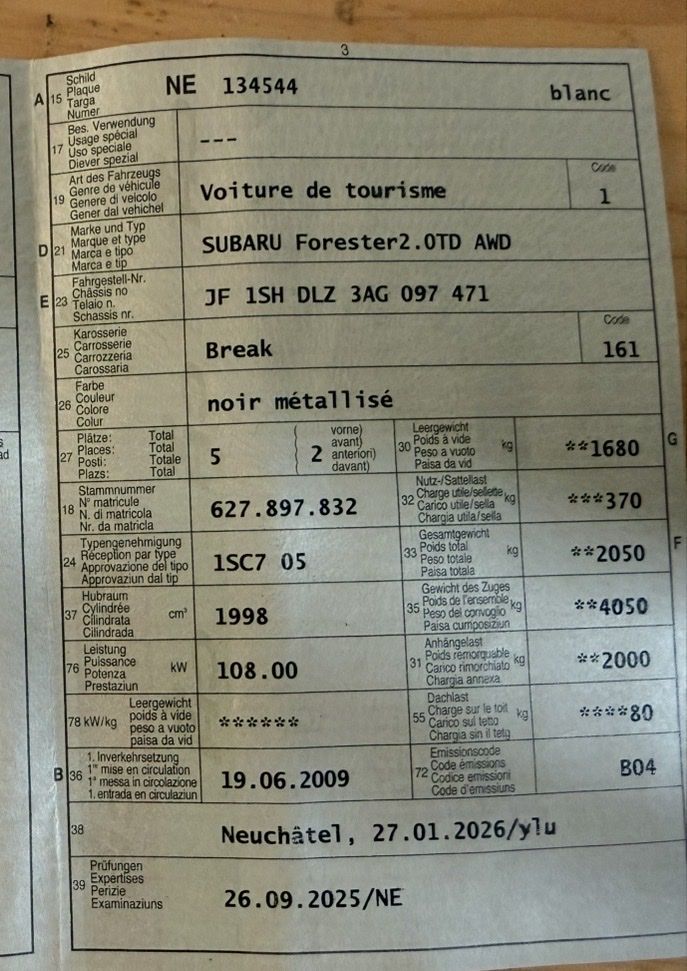 3
A 15 Schild
Plaque
Targa
Numer
NE 134544 blanc
17 Bes. Verwendung
Usage spécial
Uso speciale
Diever spezial
---
19 Art des Fahrzeugs
Genre de véhicule
Genere di veicolo
Gener dal vehichel
Voiture de tourisme
Code
1
D 21 Marke und Typ
Marque et type
Marca e tipo
Marca e tip
SUBARU Forester2.0TD AWD
E 23 Fahrgestell-Nr.
Châssis no
Telaio n.
Schassis nr.
JF 1SH DLZ 3AG 097 471
25 Karosserie
Carrosserie
Carrozzeria
Carossaria
Break
Code
161
26 Farbe
Couleur
Colore
Colur
noir métallisé
27 Plätze: Total
Places: Total
Posti: Totale
Plazs: Total
5
( vorne)
2 avant)
anteriori)
( davant)
30 Leergewicht
Poids à vide kg
Peso a vuoto
Paisa da vid
**1680
G
18 Stammnummer
N° matricule
N. di matricola
Nr. da matricla
627.897.832
32 Nutz-/Sattellast
Charge utile/sellette kg
Carico utile/sella
Chargia utila/sella
***370
24 Typengenehmigung
Réception par type
Approvazione del tipo
Approvaziun dal tip
1SC7 05
33 Gesamtgewicht
Poids total kg
Peso totale
Paisa totala
**2050
F
37 Hubraum
Cylindrée cm³
Cilindrata
Cilindrada
1998
35 Gewicht des Zuges
Poids de l'ensemble kg
Peso del convoglio
Paisa cumposiziun
**4050
76 Leistung
Puissance kW
Potenza
Prestaziun
108.00
31 Anhängelast
Poids remorquable kg
Carico rimorchiato
Chargia annexa
**2000
78 kW/kg Leergewicht
poids à vide
peso a vuoto
paisa da vid
******
55 Dachlast
Charge sur le toit kg
Carico sul tetto
Chargia sin il tetg
****80
B 36 1. Inverkehrsetzung
1re mise en circulation
1a messa in circolazione
1. entrada en circulaziun
19.06.2009
72 Emissionscode
Code émissions
Codice emissioni
Code d'emissiuns
B04
38 Neuchâtel, 27.01.2026/ylu
39 Prüfungen
Expertises
Perizie
Examinaziuns
26.09.2025/NE